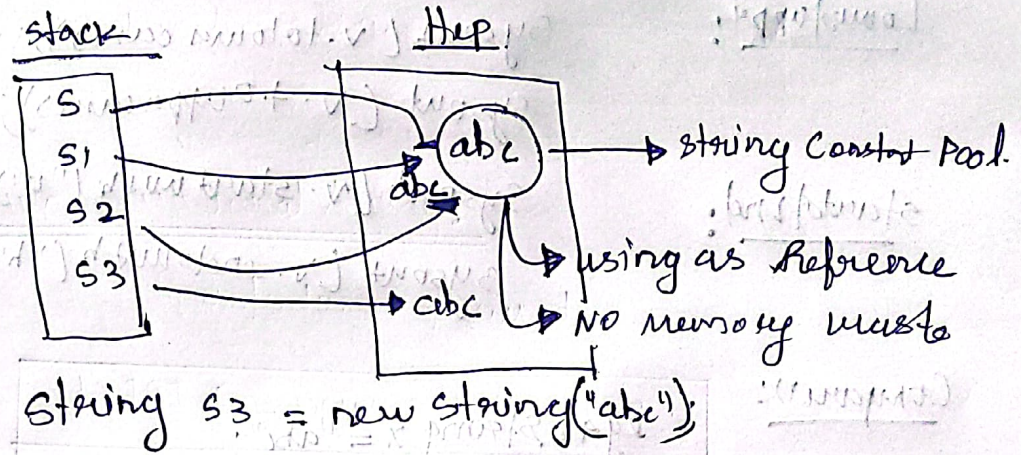 stack Hep
S
S1
S2
S3
abc
abc
abc
string Constat Pool.
using as Refreence
No memory waste
String s3 = new string("abc");